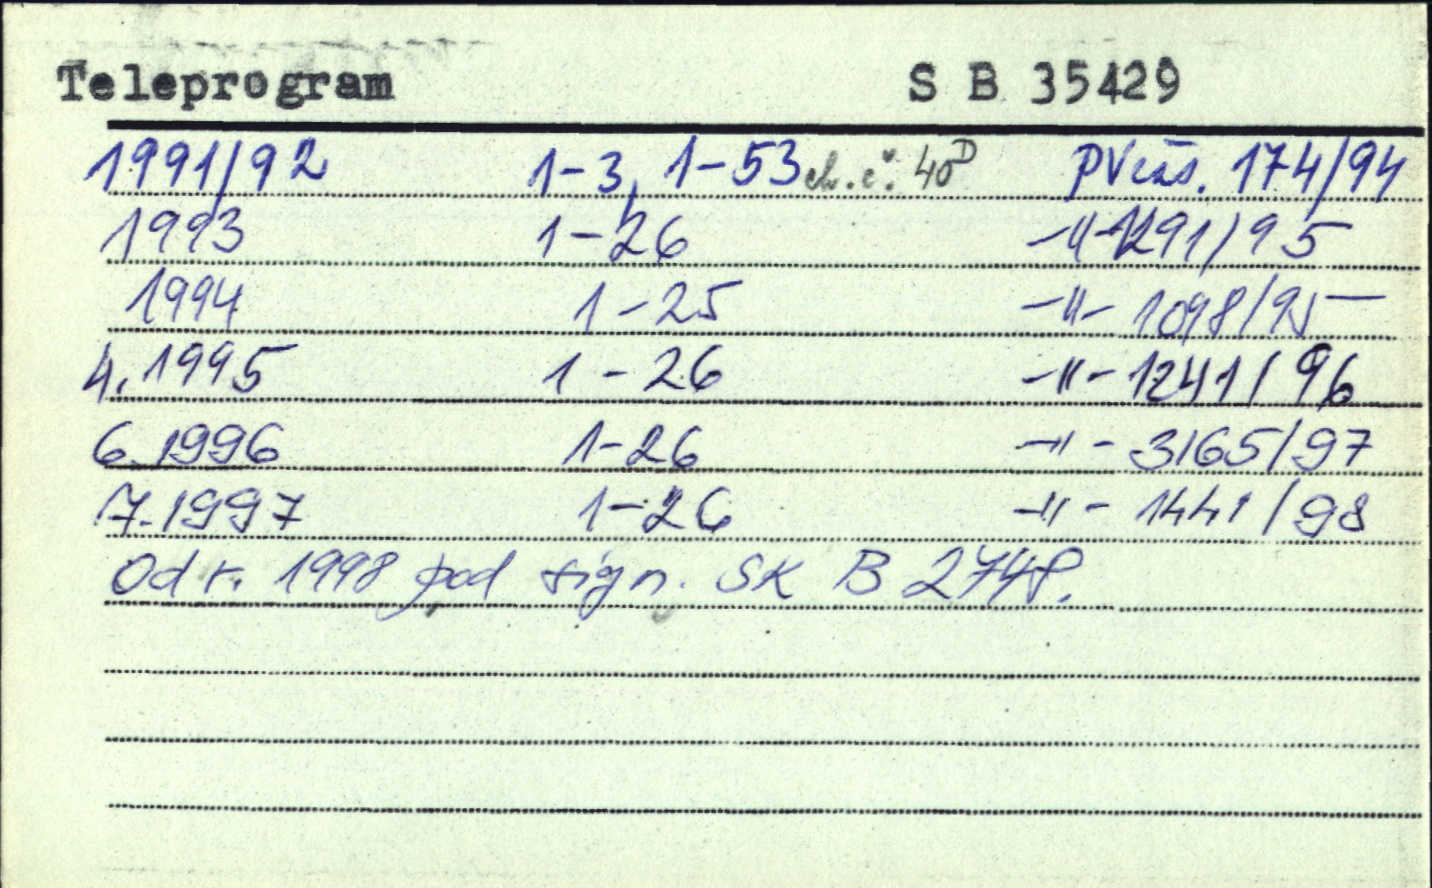 Teleprogram S B 35429
1991/92 1-3, 1-53 ch.č. 40 PVčas. 174/94
1993 1-26 -"- 1291/95
1994 1-25 -"- 1098/95
4. 1995 1-26 -"- 1241/96
6. 1996 1-26 -"- 3165/97
7. 1997 1-26 -"- 1441/98
Od r. 1998 pod sign. SK B 2748.